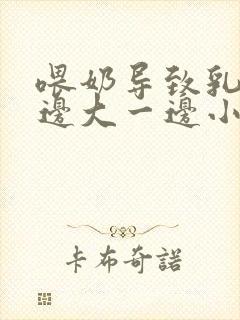 喂奶导致乳
邊大一邊小
卡布奇諾